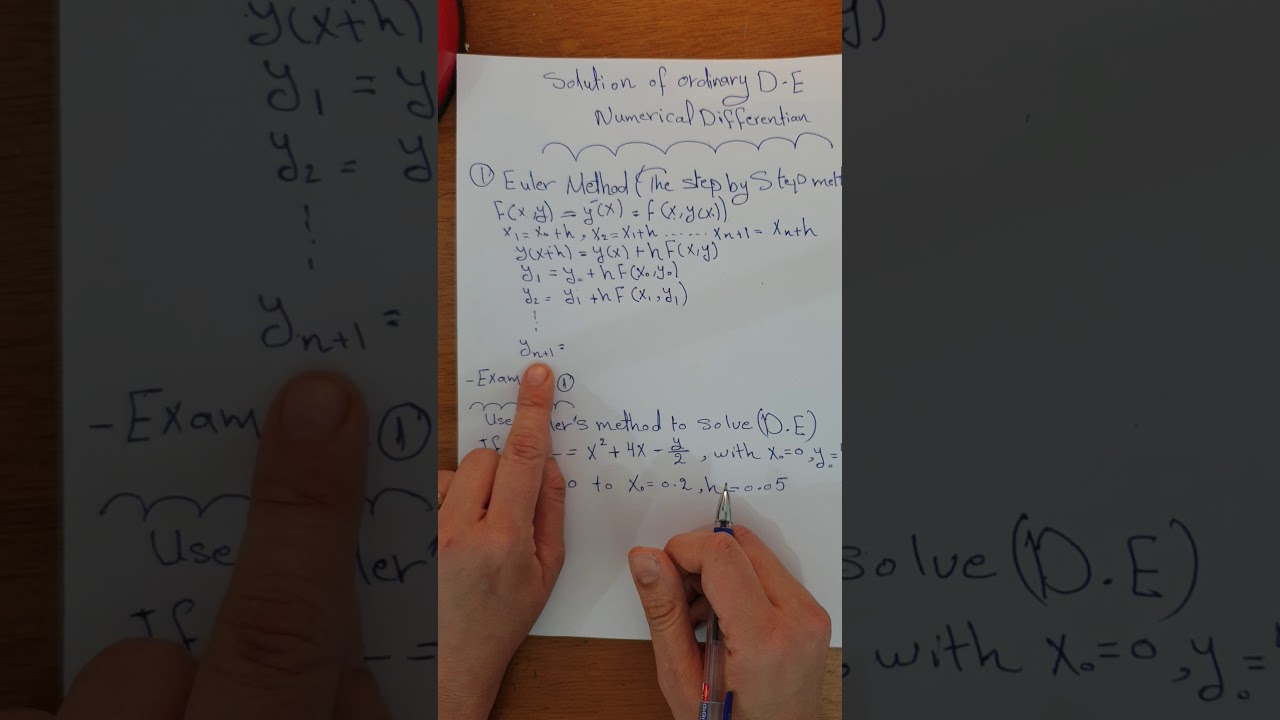 Solution of ordinary D.E
Numerical Differentian
① Euler Method (The step by Step met
F(x,y) = y'(x) = f(x,y(x))
x₁ = x₀ + h, x₂ = x₁ + h ...... xn+1 = xn+h
y(x+h) = y(x) + h F(x,y)
y₁ = y₀ + h F(x₀,y₀)
y₂ = y₁ + h F(x₁,y₁)
yn+1 =
- Exam ①
Use ler's method to solve (D.E)
If = x² + 4x - y/2, with x₀=0, y₀=
0 to x₀=0.2, h=0.05